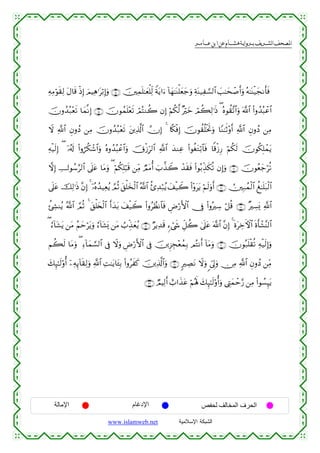 المصحف الشريف برواية هشام عن ابن عامر
فَأَنجَيْنَٰهُ وَأَصْحَٰبَ ٱلسَّفِينَةِ وَجَعَلْنَٰهَآ ءَايَةً لِّلْعَٰلَمِينَ وَإِبْرَٰهِيمَ إِذْ قَالَ لِقَوْمِهِ
ٱعْبُدُوا۟ ٱللَّهَ وَٱتَّقُوهُ ۖ ذَٰلِكُمْ خَيْرٌ لَّكُمْ إِن كُنتُمْ تَعْلَمُونَ إِنَّمَا تَعْبُدُونَ
مِن دُونِ ٱللَّهِ أَوْثَٰنًا وَتَخْلُقُونَ إِفْكًا ۚ إِنَّ ٱلَّذِينَ تَعْبُدُونَ مِن دُونِ ٱللَّهِ لَا
يَمْلِكُونَ لَكُمْ رِزْقًا فَٱبْتَغُوا۟ عِندَ ٱللَّهِ ٱلرِّزْقَ وَٱعْبُدُوهُ وَٱشْكُرُوا۟ لَهُۥٓ ۖ إِلَيْهِ
تُرْجَعُونَ وَإِن تُكَذِّبُوا۟ فَقَدْ كَذَّبَ أُمَمٌ مِّن قَبْلِكُمْ ۖ وَمَا عَلَى ٱلرَّسُولِ إِلَّا
ٱلْبَلَٰغُ ٱلْمُبِينُ أَوَلَمْ يَرَوْا۟ كَيْفَ يُبْدِئُ ٱللَّهُ ٱلْخَلْقَ ثُمَّ يُعِيدُهُۥٓ ۚ إِنَّ ذَٰلِكَ عَلَى
ٱللَّهِ يَسِيرٌ قُلْ سِيرُوا۟ فِى ٱلْأَرْضِ فَٱنظُرُوا۟ كَيْفَ بَدَأَ ٱلْخَلْقَ ۚ ثُمَّ ٱللَّهُ يُنشِئُ
ٱلنَّشْأَةَ ٱلْآخِرَةَ ۚ إِنَّ ٱللَّهَ عَلَىٰ كُلِّ شَىْءٍ قَدِيرٌ يُعَذِّبُ مَن يَشَآءُ وَيَرْحَمُ مَن يَشَآءُ ۖ
وَإِلَيْهِ تُقْلَبُونَ وَمَآ أَنتُم بِمُعْجِزِينَ فِى ٱلْأَرْضِ وَلَا فِى ٱلسَّمَآءِ ۖ وَمَا لَكُم
مِّن دُونِ ٱللَّهِ مِن وَلِىٍّ وَلَا نَصِيرٍ وَٱلَّذِينَ كَفَرُوا۟ بِـَٔايَٰتِ ٱللَّهِ وَلِقَآئِهِۦٓ أُو۟لَٰٓئِكَ
يَئِسُوا۟ مِن رَّحْمَتِى وَأُو۟لَٰٓئِكَ لَهُمْ عَذَابٌ أَلِيمٌ
الحرف المخالف لحفص الإدغام الإمالة
الشبكة الإسلامية www.islamweb.net